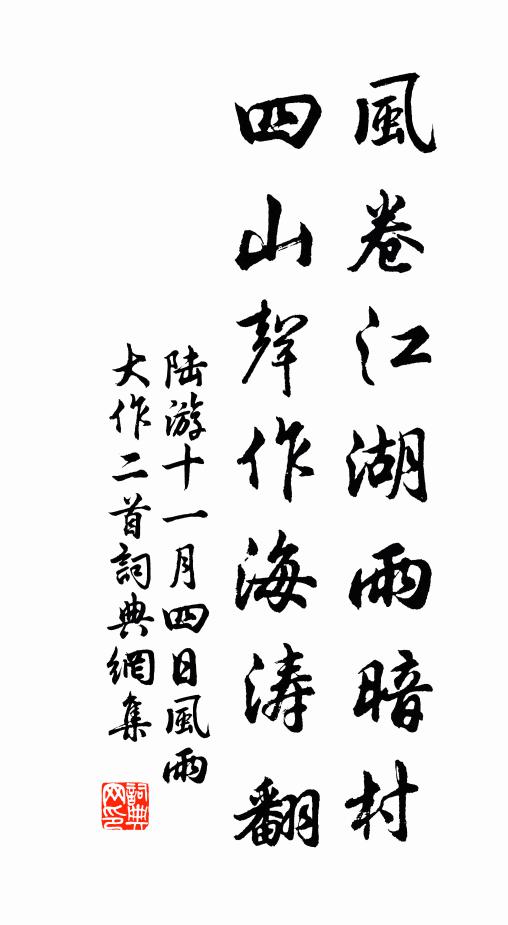 風卷江湖雨暗村
四山聲作海濤翻
陸游十一月四日風雨
大作二首詞典網集
詞典
网印